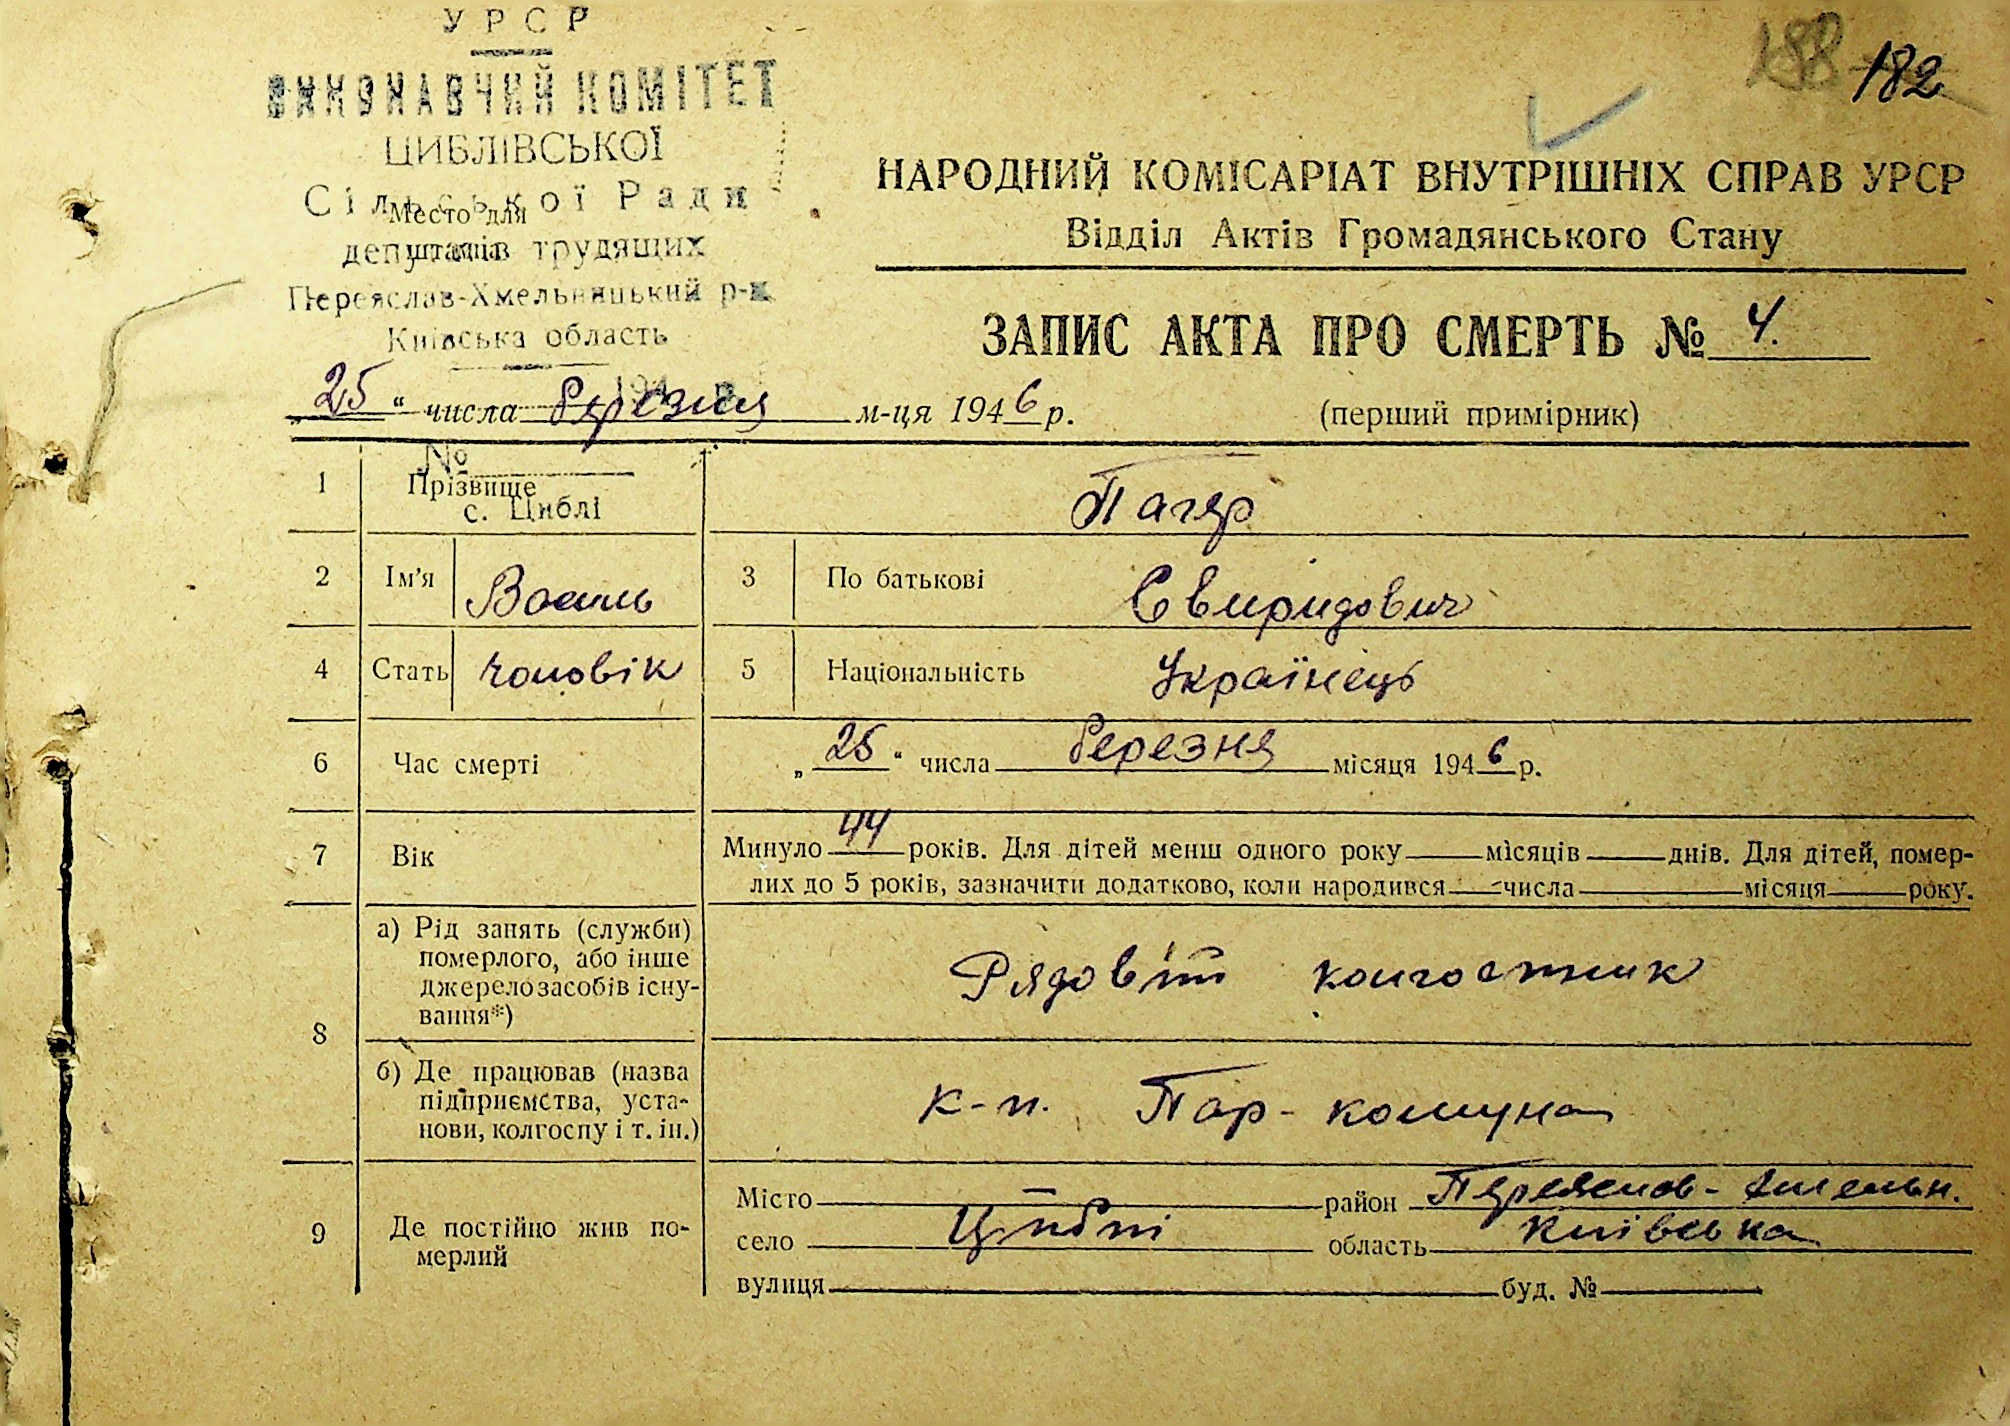 УРСР
ВИКОНАВЧИЙ КОМІТЕТ
ЦИБЛІВСЬКОЇ
Сільської Ради
Место для
депутатів трудящих
штампа
Переяслав-Хмельницький р-н
Київська область
188 182
НАРОДНИЙ КОМІСАРІАТ ВНУТРІШНІХ СПРАВ УРСР
Відділ Актів Громадянського Стану
ЗАПИС АКТА ПРО СМЕРТЬ № 4.
194 р.
„25“ числа березня м-ця 1946 р.
(перший примірник)
№
1 Прізвище
с. Циблі
Пагер
2 Ім'я Василь 3 По батькові Свиридович
4 Стать чоловік 5 Національність Українець
6 Час смерті „25“ числа березня місяця 1946 р.
7 Вік Минуло 44 років. Для дітей менш одного року місяців днів. Для дітей, помер-
лих до 5 років, зазначити додатково, коли народився числа місяця року.
8 а) Рід занять (служби)
померлого, або інше
джерело засобів існу-
вання*)
Рядовий колгоспник
б) Де працював (назва
підприємства, уста-
нови, колгоспу і т. ін.)
к-п. Пар-комуна
9 Де постійно жив по-
мерлий
Місто — район Переяслав-Хмельн.
село Циблі область Київська
вулиця буд. №